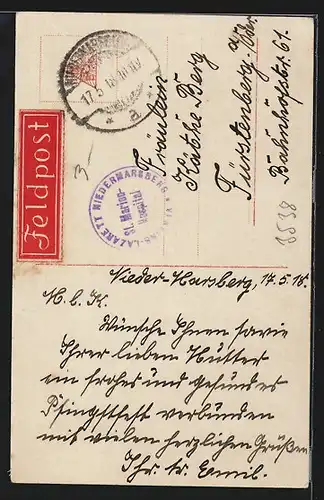 Feldpost
NIEDERMARSBERG
17.5.18.
* a
VEREINS-LAZARETT NIEDERMARSBERG
St. Marien-
Hospital
3-
Fräulein
Käthe Berg
Fürstenberg a/Oder.
Bahnhofstr. 61.
8538
Nieder-Marsberg, 17.5.18.
M. l. K.
Wünsche Ihnen sowie
Ihrer lieben Mutter
ein frohes und gesundes
Pfingstfest verbunden
mit vielen herzlichen Grüßen
Ihr. tr. Emil.